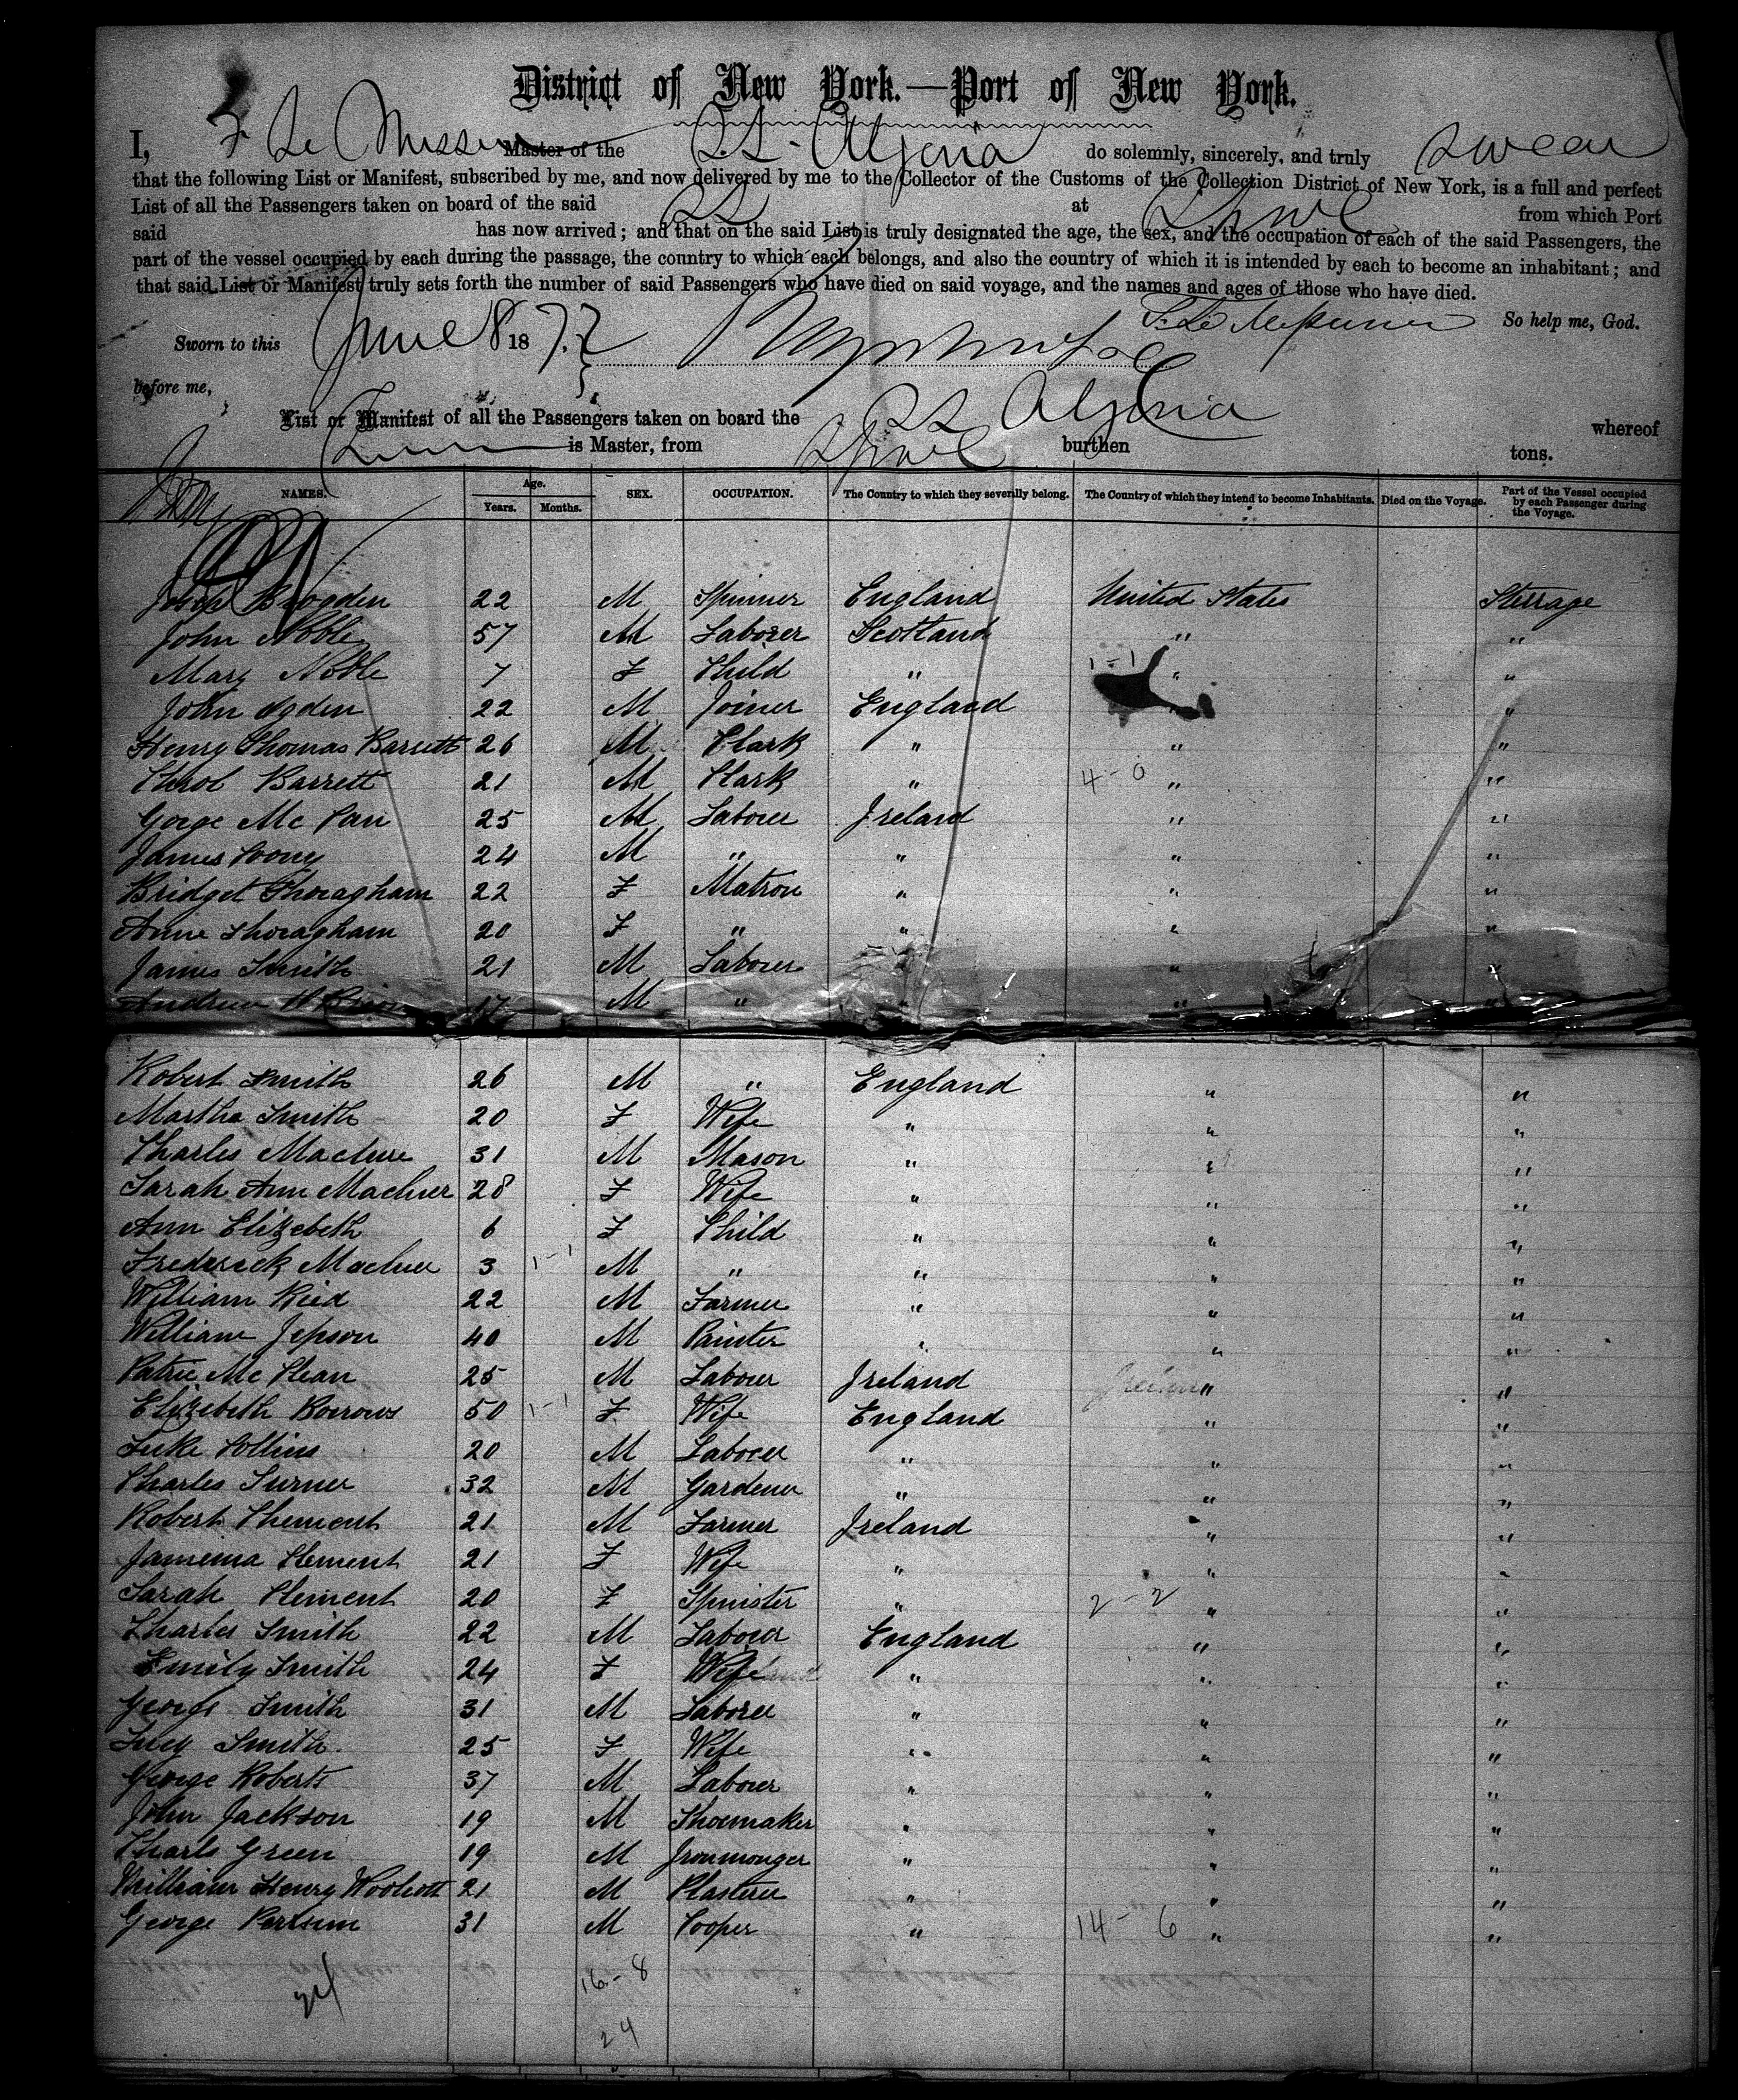 District of New York.—Port of New York.
I, Master of the S.S. Algeria do solemnly, sincerely, and truly swear
that the following List or Manifest, subscribed by me, and now delivered by me to the Collector of the Customs of the Collection District of New York, is a full and perfect
List of all the Passengers taken on board of the said SS at from which Port
said has now arrived; and that on the said List is truly designated the age, the sex, and the occupation of each of the said Passengers, the
part of the vessel occupied by each during the passage, the country to which each belongs, and also the country of which it is intended by each to become an inhabitant; and
that said List or Manifest truly sets forth the number of said Passengers who have died on said voyage, and the names and ages of those who have died.
So help me, God.
Sworn to this June 8 187
before me,
List or Manifest of all the Passengers taken on board the SS Algeria whereof
is Master, from burthen tons.
NAMES. Age. Years. Months. SEX. OCCUPATION. The Country to which they severally belong. The Country of which they intend to become Inhabitants. Died on the Voyage. Part of the Vessel occupied by each Passenger during the Voyage.
Brogden 22 M Spinner England United States Sterrage
John Noble 57 M Laborer Scotland " "
Mary Noble 7 F Child " 1-1 " "
John Ogden 22 M Joiner England " "
Henry Thomas Barrett 26 M Clark " " "
Barrett 21 M Clark " 4-0 " "
Gorge Mc 25 M Laborer Ireland " "
James 24 M " " " "
Bridget 22 F Matron " " "
Anne 20 F " " " "
James Smith 21 M Laborer " "
Andrew 17 M " " " "
Robert Smith 26 M " England " "
Martha Smith 20 F Wife " " "
Charles Maclure 31 M Mason " " "
Sarah Ann Maclure 28 F Wife " " "
Ann Elizebeth 6 F Child " " "
Frederick Maclure 3 1-1 M " " " "
William Reid 22 M Farmer " " "
William Jepson 40 M Painter " " "
Mc Clean 25 M Laborer Ireland " "
Elizebeth Borrows 50 1-1 F Wife England " "
Luke Collins 20 M Laborer " " "
Charles Turner 32 M Gardener " " "
Robert Clement 21 M Farmer Ireland " "
Jamema Clement 21 F Wife " " "
Sarah Clement 20 F Spinister " 2-2 " "
Charles Smith 22 M Laborer England " "
Emily Smith 24 F Wife " " "
George Smith 31 M Laborer " " "
Lucy Smith 25 F Wife " " "
George Roberts 37 M Laborer " " "
John Jackson 19 M Shoemaker " " "
Charls Green 19 M Ironmonger " " "
William Henry 21 M Plasterer " " "
George 31 M Cooper " 14-6 " "
16-8
24